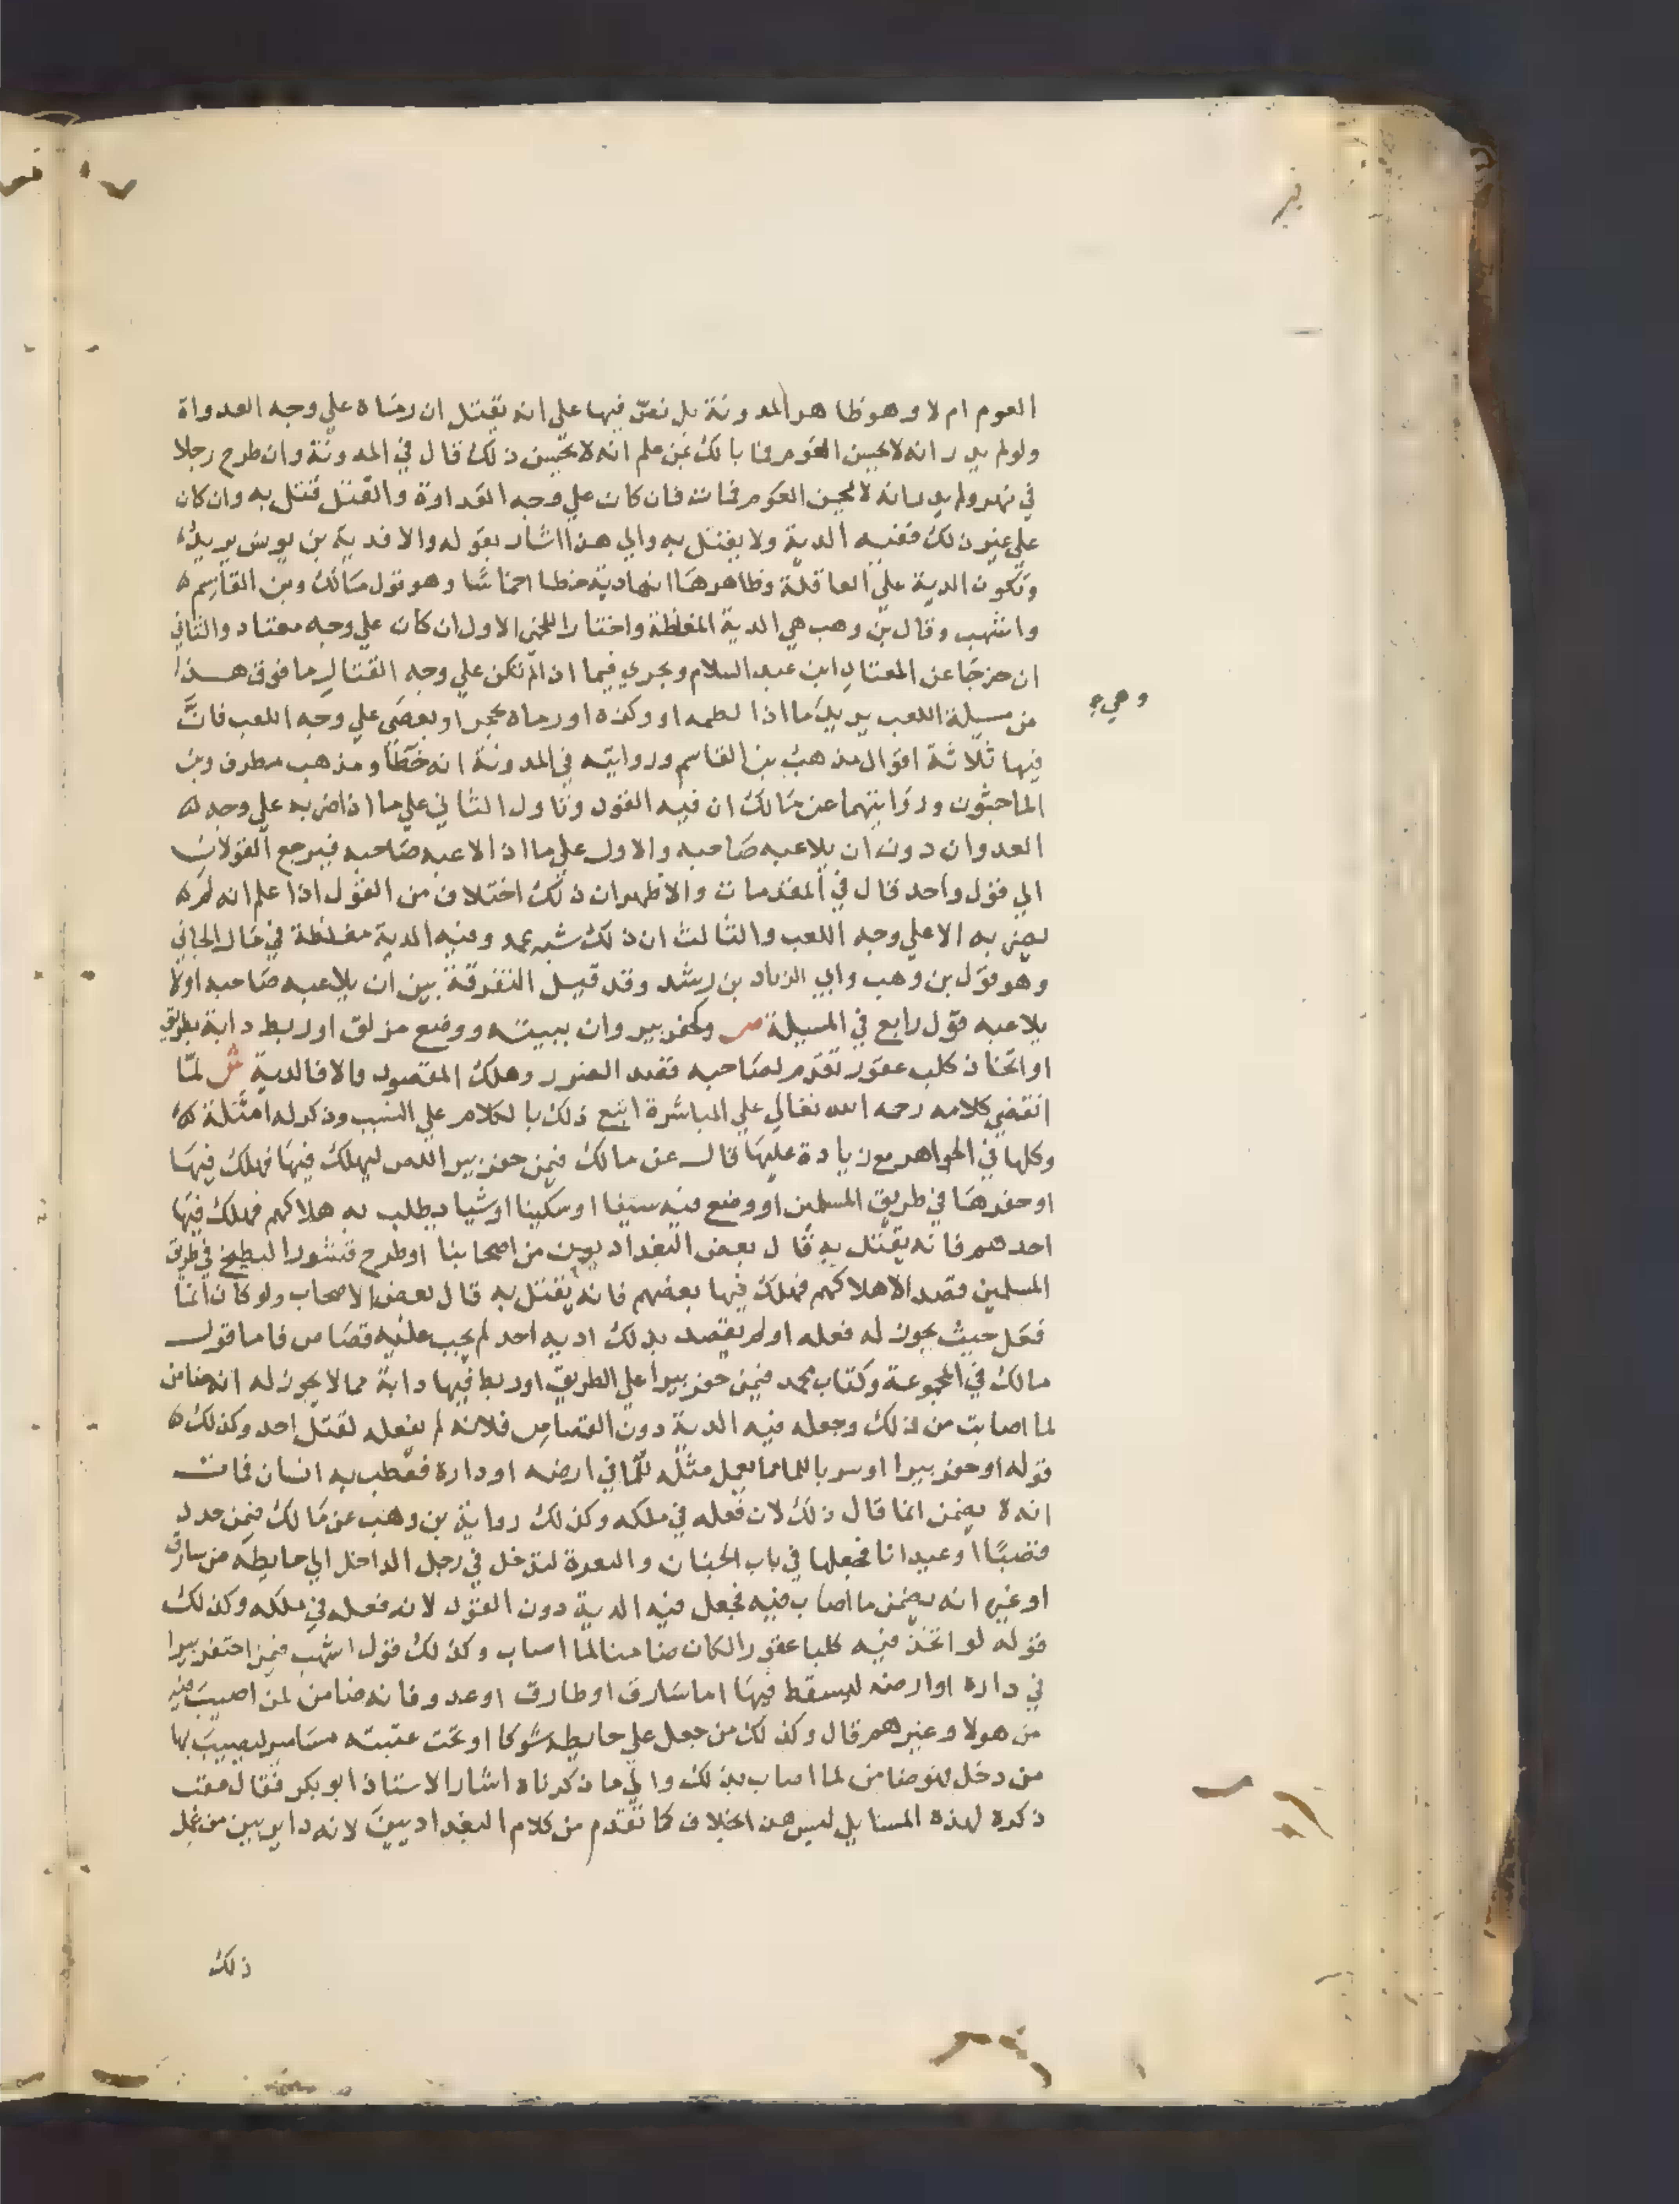 العوم ام لا وهو ظاهر المدونة بل نص فيها علي انه يقتل ان رماه علي وجه العدواة
ولو لم يدر انه لا يحسن العوم فما بالك بمن علم انه لا يحسن ذلك قال في المدونة وان طرح رجلا
في نهر ولم يدر انه لا يحسن العوم فمات فان كان علي وجه العداوة والقتل قتل به وان كان
علي غير ذلك ففيه الدية ولا يقتل به والي هذا اشار بقوله والا فدية بن يونس يريد
وتكون الدية علي العاقلة وظاهرها انها دية خطا اخماسا وهو قول مالك وبن القاسم
واشهب وقال بن وهب هي الدية المغلظة واختار اللخمي الاول ان كان علي وجه معتاد والثاني
ان خرجا عن المعتاد ابن عبد السلام ويجري فيما اذا لم تكن علي وجه القتال ما فوق هذا
من مسيلة اللعب يريد ما اذا لطمه او وكزه او رماه بحجر او بعصي علي وجه اللعب فان
وهي
فيها ثلاثة اقوال مذهب بن القاسم وروايته في المدونة انه خطأ ومذهب مطرف وبن
الماجشون وروايتهما عن مالك ان فيه القود وتاول الثاني علي ما اذا ضربه علي وجه
العدوان دون ان يلاعبه صاحبه والاول علي ما اذا لاعبه صاحبه فيرجع القولان
الي قول واحد قال في المقدمات والاظهر ان ذلك اختلاف من القول اذا علم انه لم
يضربه الا علي وجه اللعب والثالث ان ذلك شبه عمد وفيه الدية مغلظة في مال الجاني
وهو قول بن وهب وابي الزناد بن رشد وقد قيل التفرقة بين ان يلاعبه صاحبه اولا
يلاعبه قول رابع في المسيلة ص وكحفر بير وان ببيته ووضع مزلق او ربط دابة بطريق
او اتخاذ كلب عقور تقدم لصاحبه قصد الضرر وهلك المقصود والا فالدية ش لما
انقضي كلامه رحمه الله تعالي علي المباشرة اتبع ذلك بالكلام علي السبب وذكر له امثلة
وكلها في الجواهر مع زيادة عليها قال عن مالك فيمن حفر بير اللص ليهلك فيها فهلك فيها
او حفرها في طريق المسلمين او وضع فيه سيفا او سكينا او شيا يطلب به هلاكهم فهلك فيها
احدهم فانه يقتل به قال بعض البغداديين من اصحابنا او طرح قشور البطيخ في طريق
المسلمين قصد الاهلاكهم فهلك فيها بعضهم فانه يقتل به قال بعض الاصحاب ولو كان انما
فعل حيث يجوز له فعله او لم يقصد بذلك اذية احد لم يجب عليه قصاص فاما قول
مالك في المجموعة وكتاب محمد فيمن حفر بيرا علي الطريق او ربط فيها دابة مما لا يجوز له انه ضامن
لما اصابت من ذلك وجعله فيه الدية دون القصاص فلانه لم يفعله لقتل احد وكذلك
قوله او حفر بيرا او سربا للماء مما يعمل مثله في ارضه او داره فعطب به انسان فمات
انه يضمن انما قال ذلك لان فعله في ملكه وكذلك رواية بن وهب عن مالك فيمن حدد
قصبا او عيدانا فجعلها في باب الجنان والنعرة لتدخل في رجل الداخل الي حايطه من سارق
او غيره انه يضمن ما اصاب فيه فجعل فيه الدية دون القود لانه فعله في ملكه وكذلك
قوله لو اتخذ فيه كلبا عقورا لكان ضامنا لما اصاب وكذلك قول اشهب فيمن احتفر بيرا
في داره او ارضه ليسقط فيها اما سارق او طارق او عدو فانه ضامن لمن اصيب فيه
من هولا وغيرهم قال وكذلك من جعل علي حايطه شوكا او تحت عتبته مسامير ليصيب بها
من دخل فهو ضامن لما اصاب بذلك والي ما ذكرناه اشار الاستاذ ابو بكر فقال عقب
ذكره لهذه المسايل ليس هذا بخلاف كما تقدم من كلام البغداديين لانه داير بين من فعل
ذلك